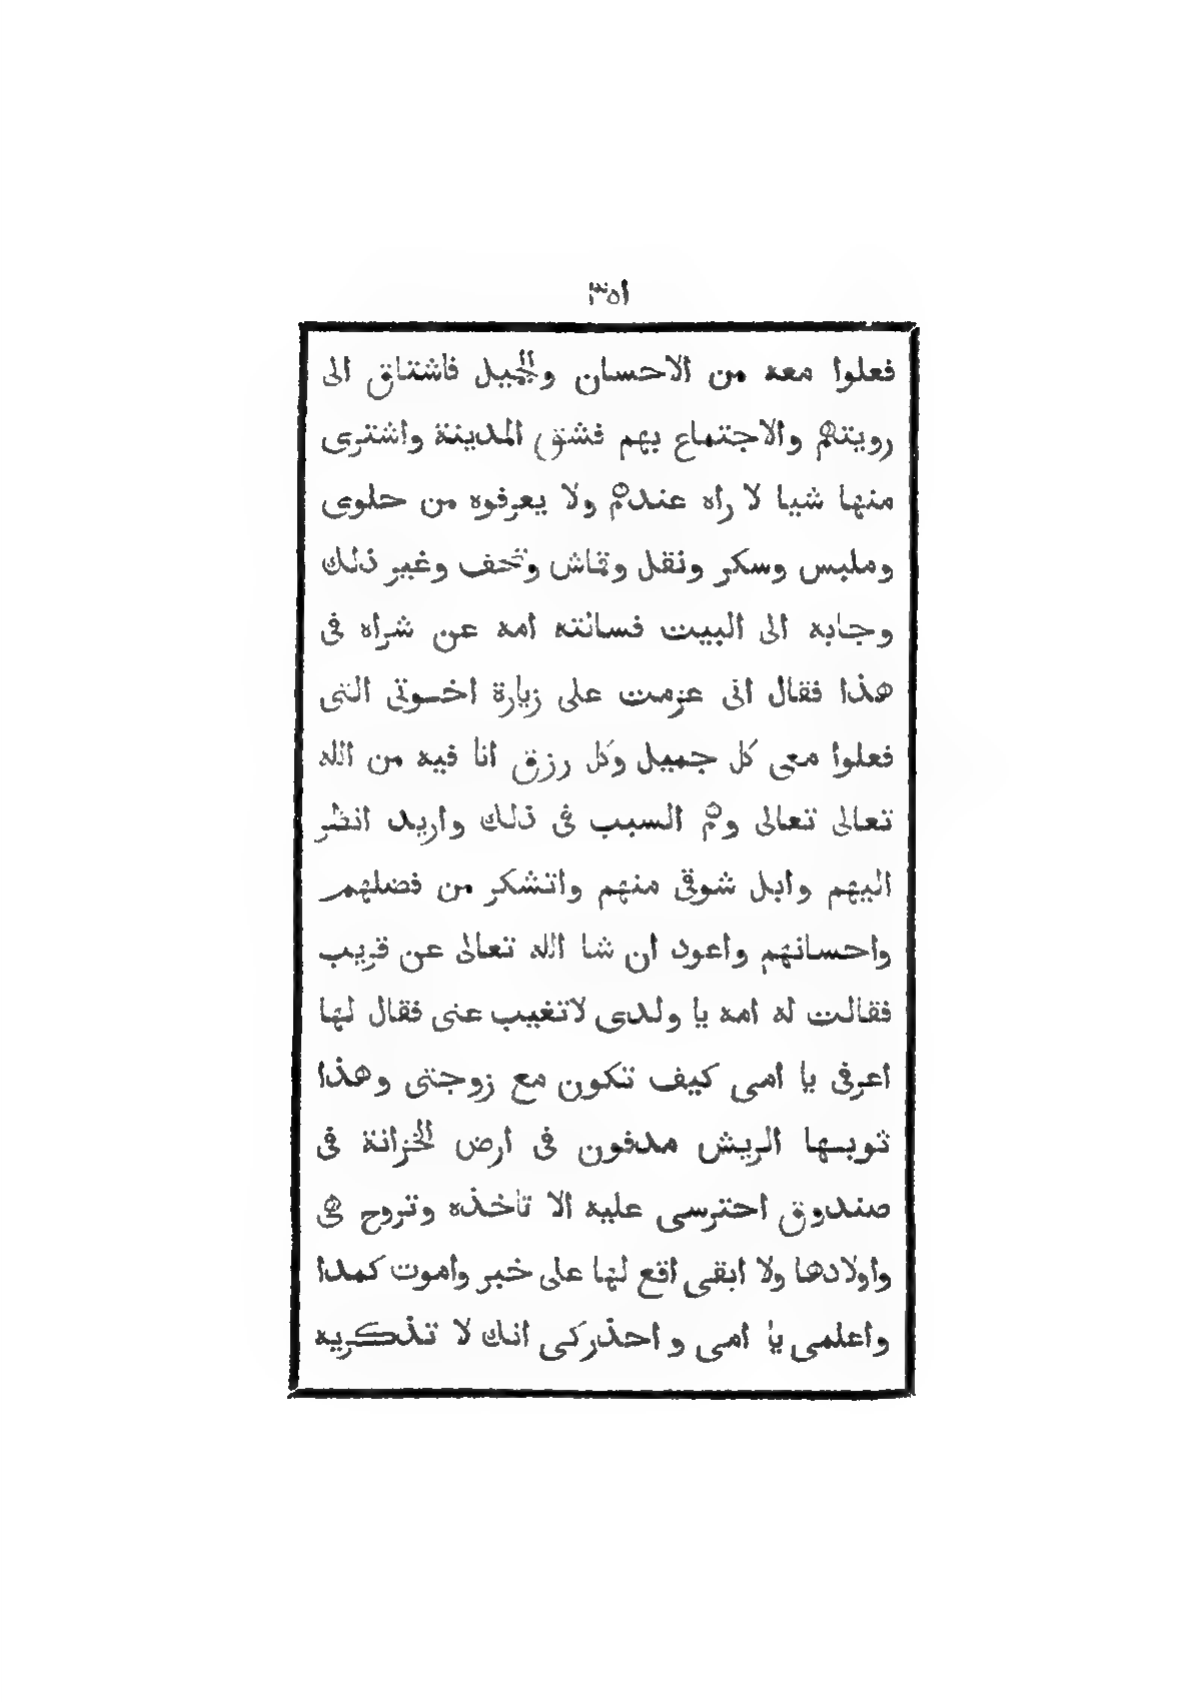 ٣٥١
فعلوا معه من الاحسان والجميل فاشتاق الى
رويتهم والاجتماع بهم فشق المدينة واشترى
منها شيا لا راه عندهم ولا يعرفوه من حلوى
وملبس وسكر ونقل وقماش وتحف وغير ذلك
وجابه الى البيت فسالته امه عن شراه فى
هذا فقال انى عزمت على زيارة اخوتى التى
فعلوا معى كل جميل وكل رزق انا فيه من الله
تعالى تعالى وهم السبب فى ذلك واريد انظر
اليهم وابل شوقى منهم واتشكر من فضلهم
واحسانهم واعود ان شا الله تعالى عن قريب
فقالت له امه يا ولدى لاتغيب عنى فقال لها
اعرفى يا امى كيف تكون مع زوجتى وهذا
ثوبها الريش مدفون فى ارض الخزانة فى
صندوق احترسى عليه الا تاخذه وتروح هى
واولادها ولا ابقى اقع لها على خبر واموت كمدا
واعلمى يا امى و احذركى انك لا تذكريه